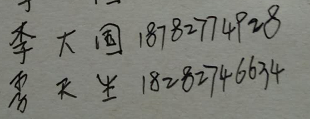 李大国 18782774928
天生 18282746634